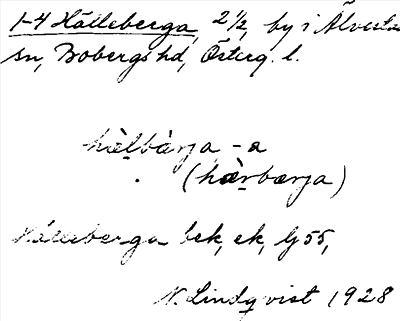 1-4 Hälleberga, 2 1/2, by i Älvesta
sn, Bobergs hd, Österg. l.
hæ̀lbàrja, -a
(hæ̀rbærja)
Hälleberga bek, ek, Gj 55,
N. Lindqvist 1928